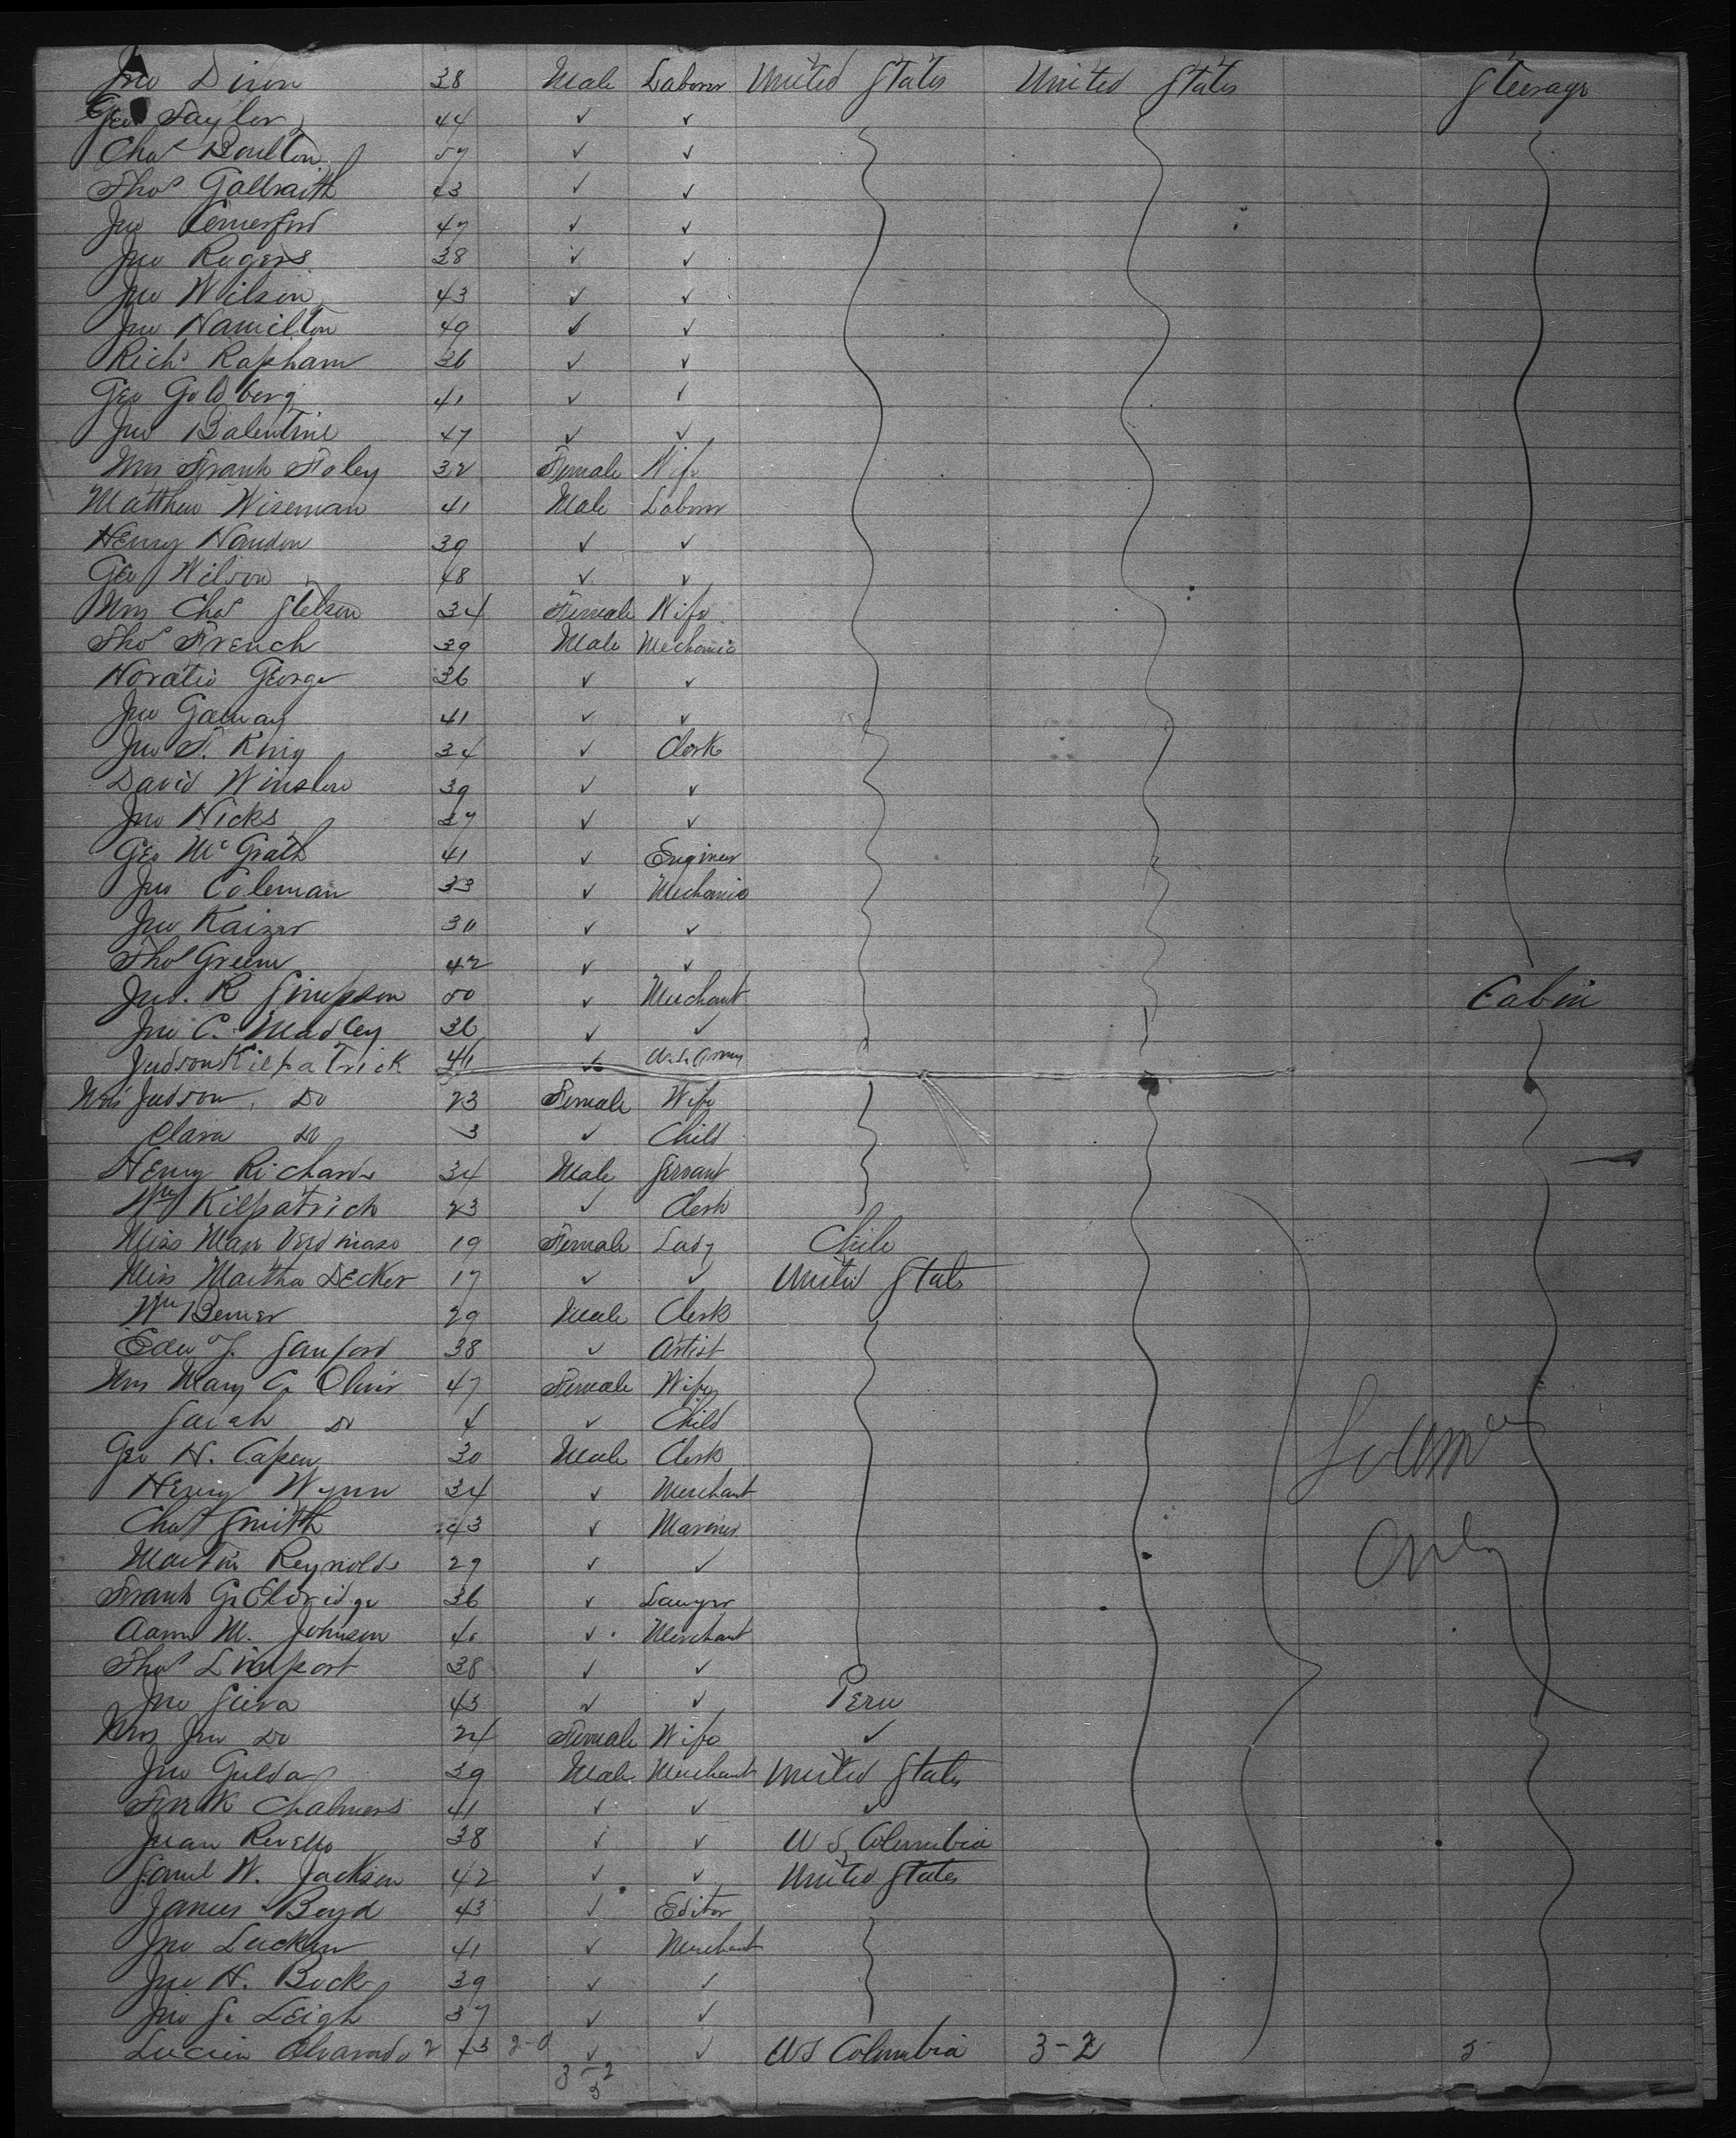 Jno Dixon 38 Male Laborer United States United States Steerage
Geo Taylor 44 ✓ ✓
Chas Boulton 57 ✓ ✓
Thos Galbraith 43 ✓ ✓
Jno Comerford 47 ✓ ✓
Jno Rogers 38 ✓ ✓
Jno Wilson 43 ✓ ✓
Jno Hamilton 49 ✓ ✓
Richd Rapham 36 ✓ ✓
Geo Goldberg 41 ✓ ✓
Jno Balentine 47 ✓ ✓
Mrs Frank Foley 32 Female Wife
Matthew Wiseman 41 Male Laborer
Henry 39 ✓ ✓
Geo Wilson 48 ✓ ✓
Mrs Chas Stetson 34 Female Wife
Thos French 39 Male Mechanic
Horatio George 36 ✓ ✓
Jno Galway 41 ✓ ✓
Jno F. King 34 ✓ Clerk
David Winslow 39 ✓ ✓
Jno Hicks 37 ✓ ✓
Geo McGrath 41 ✓ Engineer
Jno Coleman 33 ✓ Mechanic
Jno Kaizer 30 ✓ ✓
Thos Greene 42 ✓ ✓
Jno. R Simpson 50 ✓ Merchant Cabin
Jno C. Madley 36 ✓ ✓
Judson Kilpatrick 41 ✓ U.S. Army
Mrs Judson Do 23 Female Wife
Clara Do 3 ✓ Child
Henry Richards 34 Male Servant
Wm Kilpatrick 23 ✓ Clerk
Miss 19 Female Lady Chile
Miss Martha Decker 17 ✓ ✓ United States
Wm Bemer 29 Male Clerk
Edw J. Sanford 38 ✓ Artist
Mrs Mary C. Oliver 47 Female Wife
Sarah Do 4 ✓ Child
Geo H. Capen 30 Male Clerk
Henry Wynn 34 ✓ Merchant
Chas Smith 43 ✓ Mariner
Martin Reynolds 29 ✓ ✓ only
Frank G. Eldridge 36 ✓ Lawyer
Aaron M. Johnson 40 ✓ Merchant
Thos 38 ✓ ✓
Jno 43 ✓ ✓ Peru
Mrs Jno Do 24 Female Wife ✓
Jno 39 Male Merchant United States
Fredk Chalmers 41 ✓ ✓ ✓
Juan 38 ✓ ✓ U S Columbia
Saml W. Jackson 42 ✓ ✓ United States
James Boyd 43 ✓ Editor
Jno 41 ✓ Merchant
Jno H. Buck 39 ✓ ✓
Jno S. Leigh 37 ✓ ✓
Lucien Alvarado 2 43 2-0 ✓ ✓ US Columbia 3-2 5
3-2
5